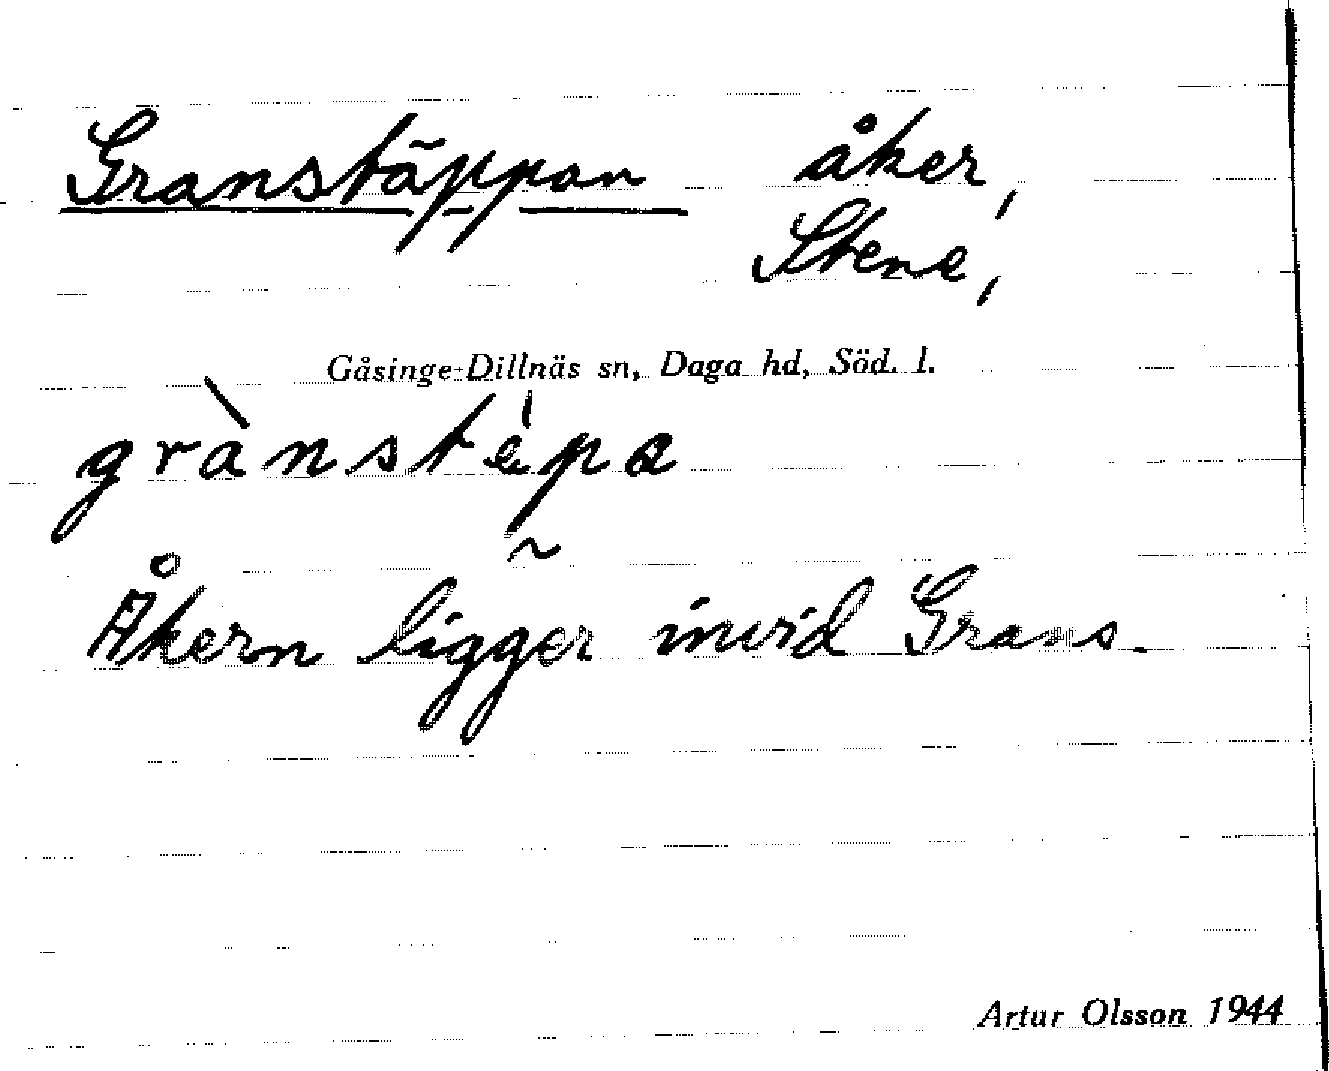 Granstäppan åker,
Stene,
Gåsinge-Dillnäs sn, Daga hd, Söd. l.
grànstèpa
Åkern ligger invid Grans.
Artur Olsson 1944